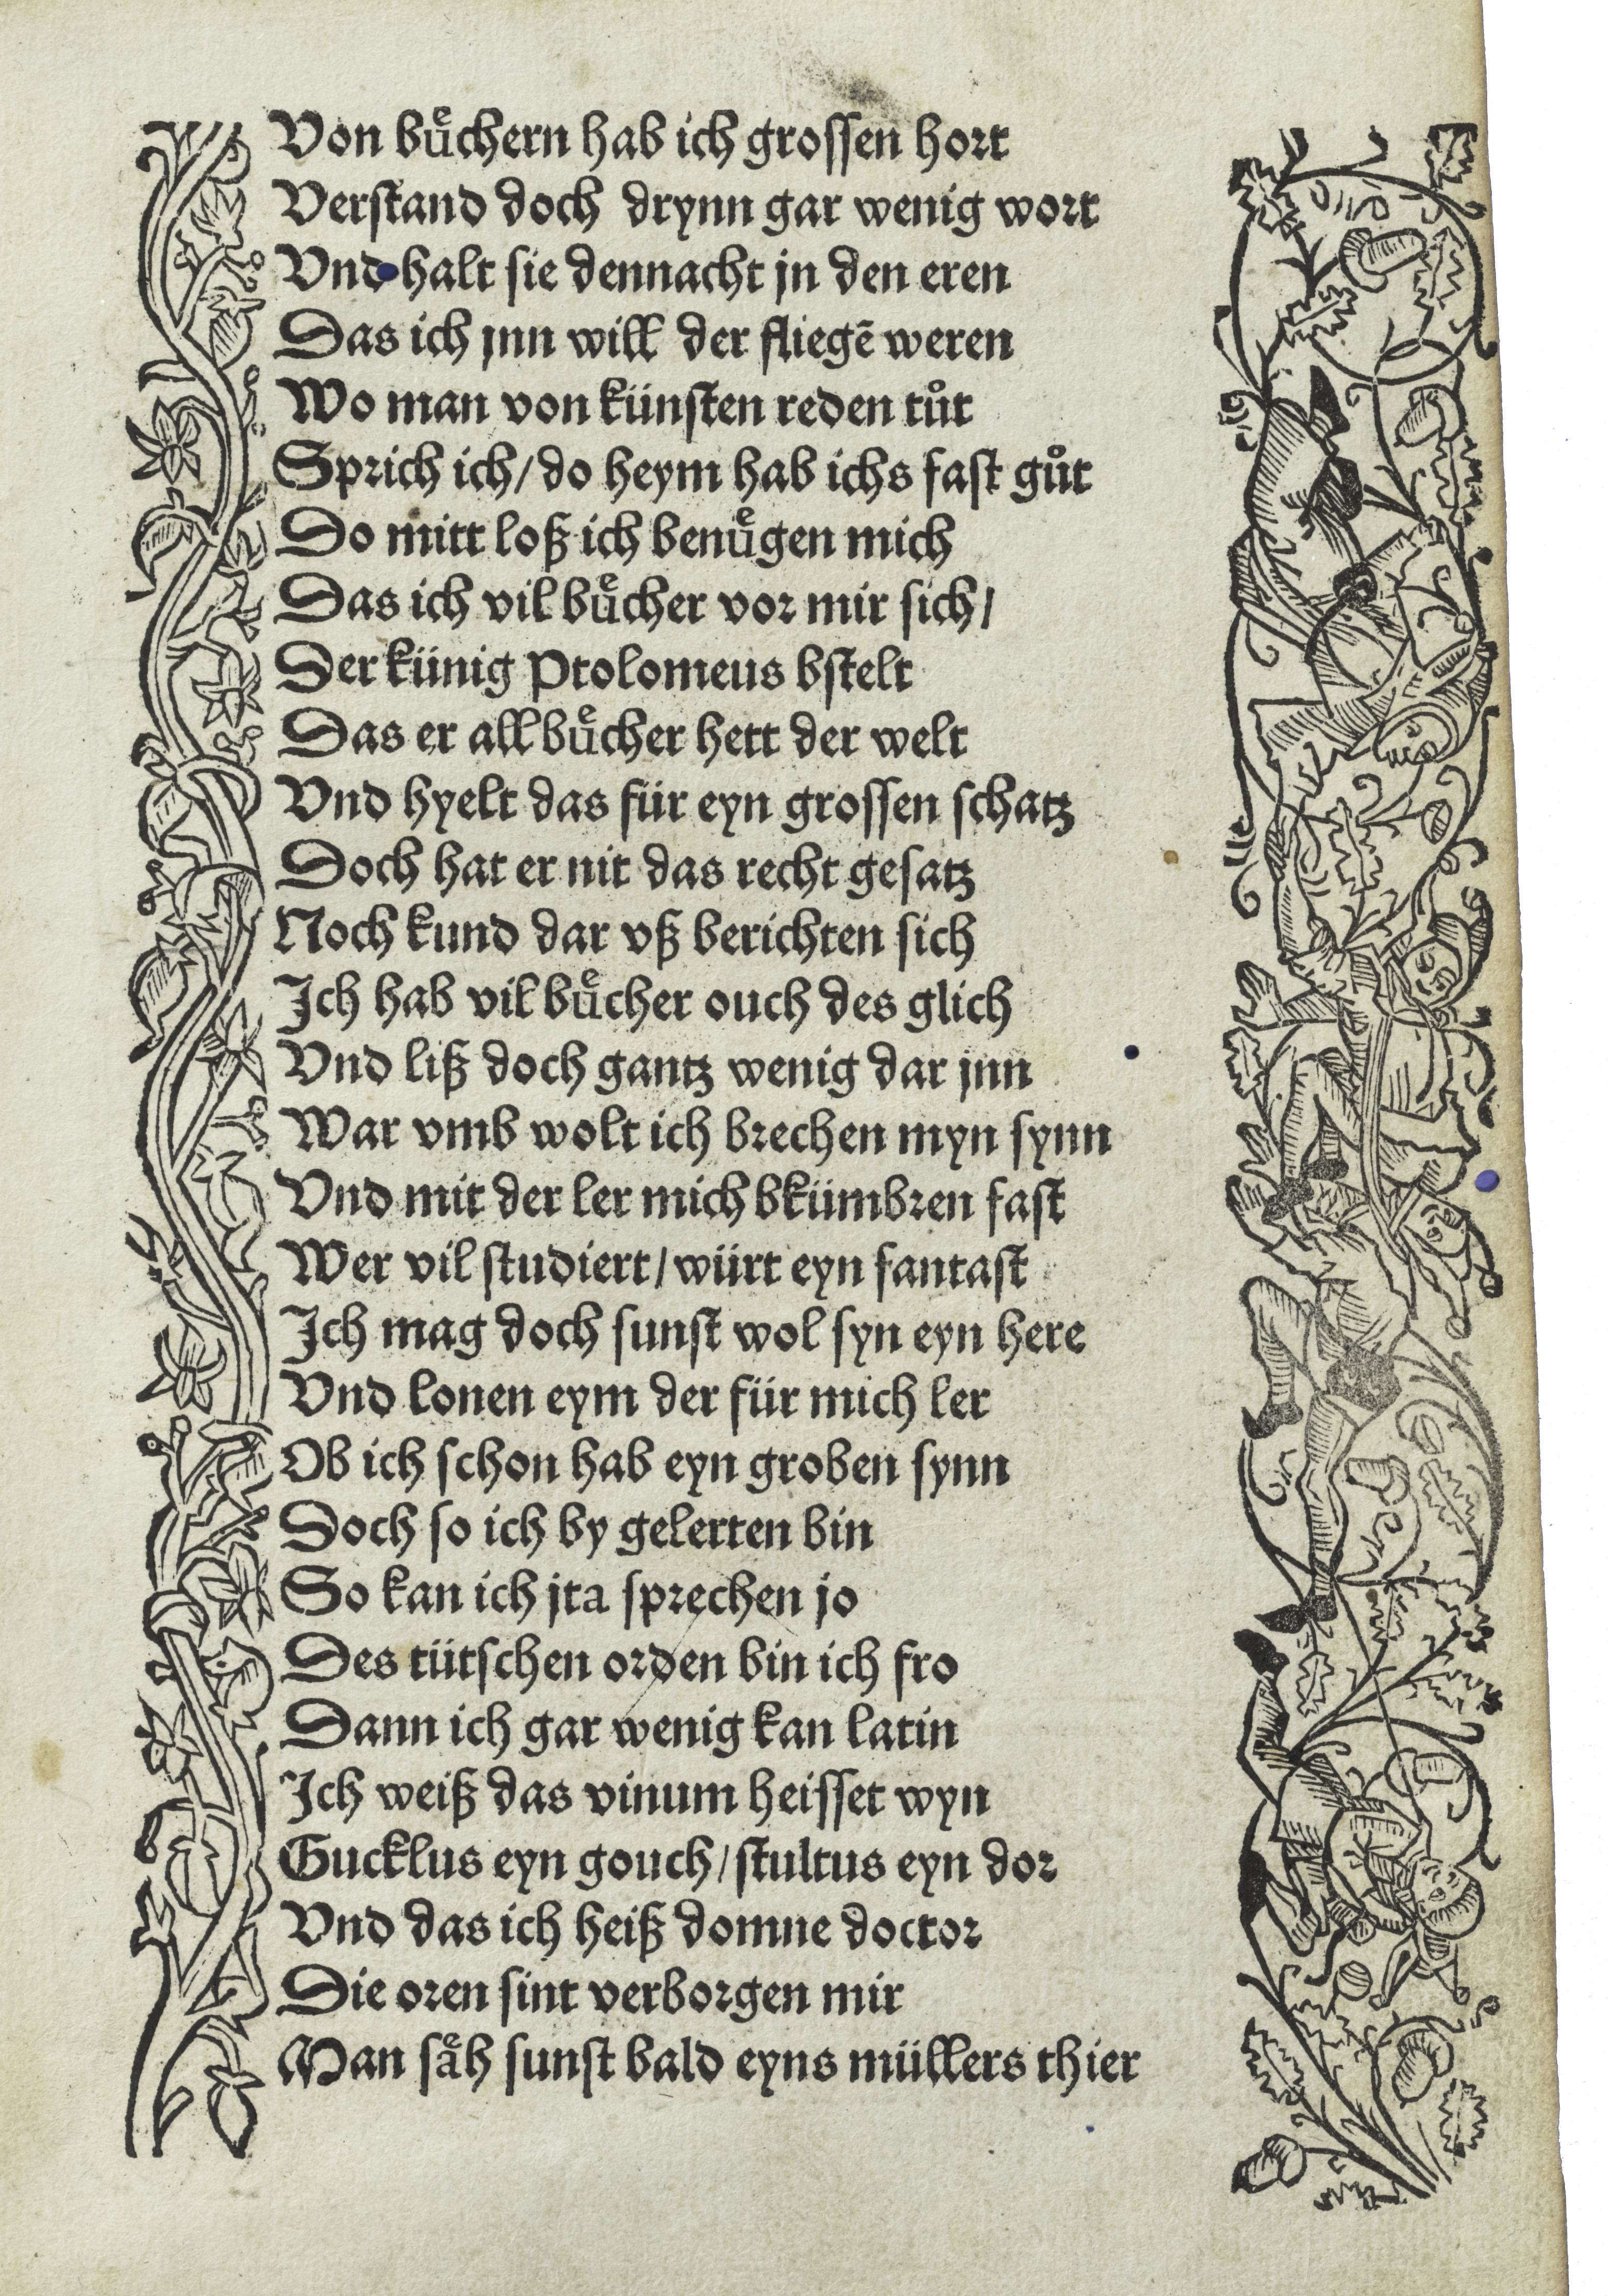 Von buͤchern hab ich grossen hort
Verstand doch drynn gar wenig wort
Vnd halt sie dennacht jn den eren
Das ich jnn will der fliegē weren
Wo man von künsten reden tůt
Sprich ich/ do heym hab ichs fast gůt
Do mitt loß ich benuͤgen mich
Das ich vil buͤcher vor mir sich/
Der künig Ptolomeus bstelt
Das er all buͤcher hett der welt
Vnd hyelt das für eyn grossen schatz
Doch hat er nit das recht gesatz
Noch kund dar vß berichten sich
Ich hab vil buͤcher ouch des glich
Vnd liß doch gantz wenig dar jnn
War vmb wolt ich brechen myn synn
Vnd mit der ler mich bkümbren fast
Wer vil studiert/ würt eyn fantast
Ich mag doch sunst wol syn eyn here
Vnd lonen eym der für mich ler
Ob ich schon hab eyn groben synn
Doch so ich by gelerten bin
So kan ich jta sprechen jo
Des tütschen orden bin ich fro
Dann ich gar wenig kan latin
Ich weiß das vinum heisset wyn
Gucklus eyn gouch/ stultus eyn dor
Vnd das ich heiß domne doctor
Die oren sint verborgen mir
Man saͤh sunst bald eyns müllers thier